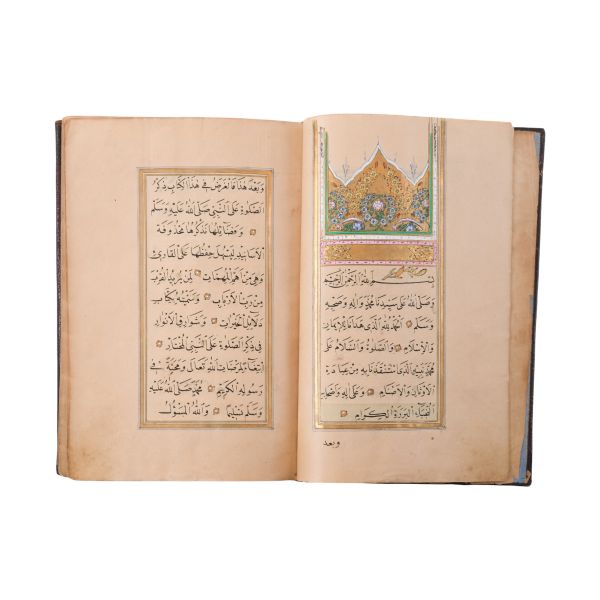 بسم الله الرحمن الرحيم
وصلى الله على سيدنا محمد واله وصحبه
وسلم الحمد لله الذي هدانا للايمان
والاسلام والصلوة والسلام على
محمد نبيه الذي استنقذنا به من عبادة
الاوثان والاصنام وعلى اله واصحابه
النجباء البررة الكرام
وبعد
وبعد هذا فالغرض في هذا الكتاب ذكر
الصلوة على النبي صلى الله عليه وسلم
وفضائلها نذكرها محذوفة
الاسانيد ليسهل حفظها على القاري
وهي من اهم المهمات لمن يريد القرب
من رب الارباب وسميته بكتاب
دلائل الخيرات وشوارق الانوار
في ذكر الصلوة على النبي المختار
ابتغاء لمرضات الله تعالى ومحبة في
رسوله الكريم محمد صلى الله عليه
وسلم تسليما والله المسؤل